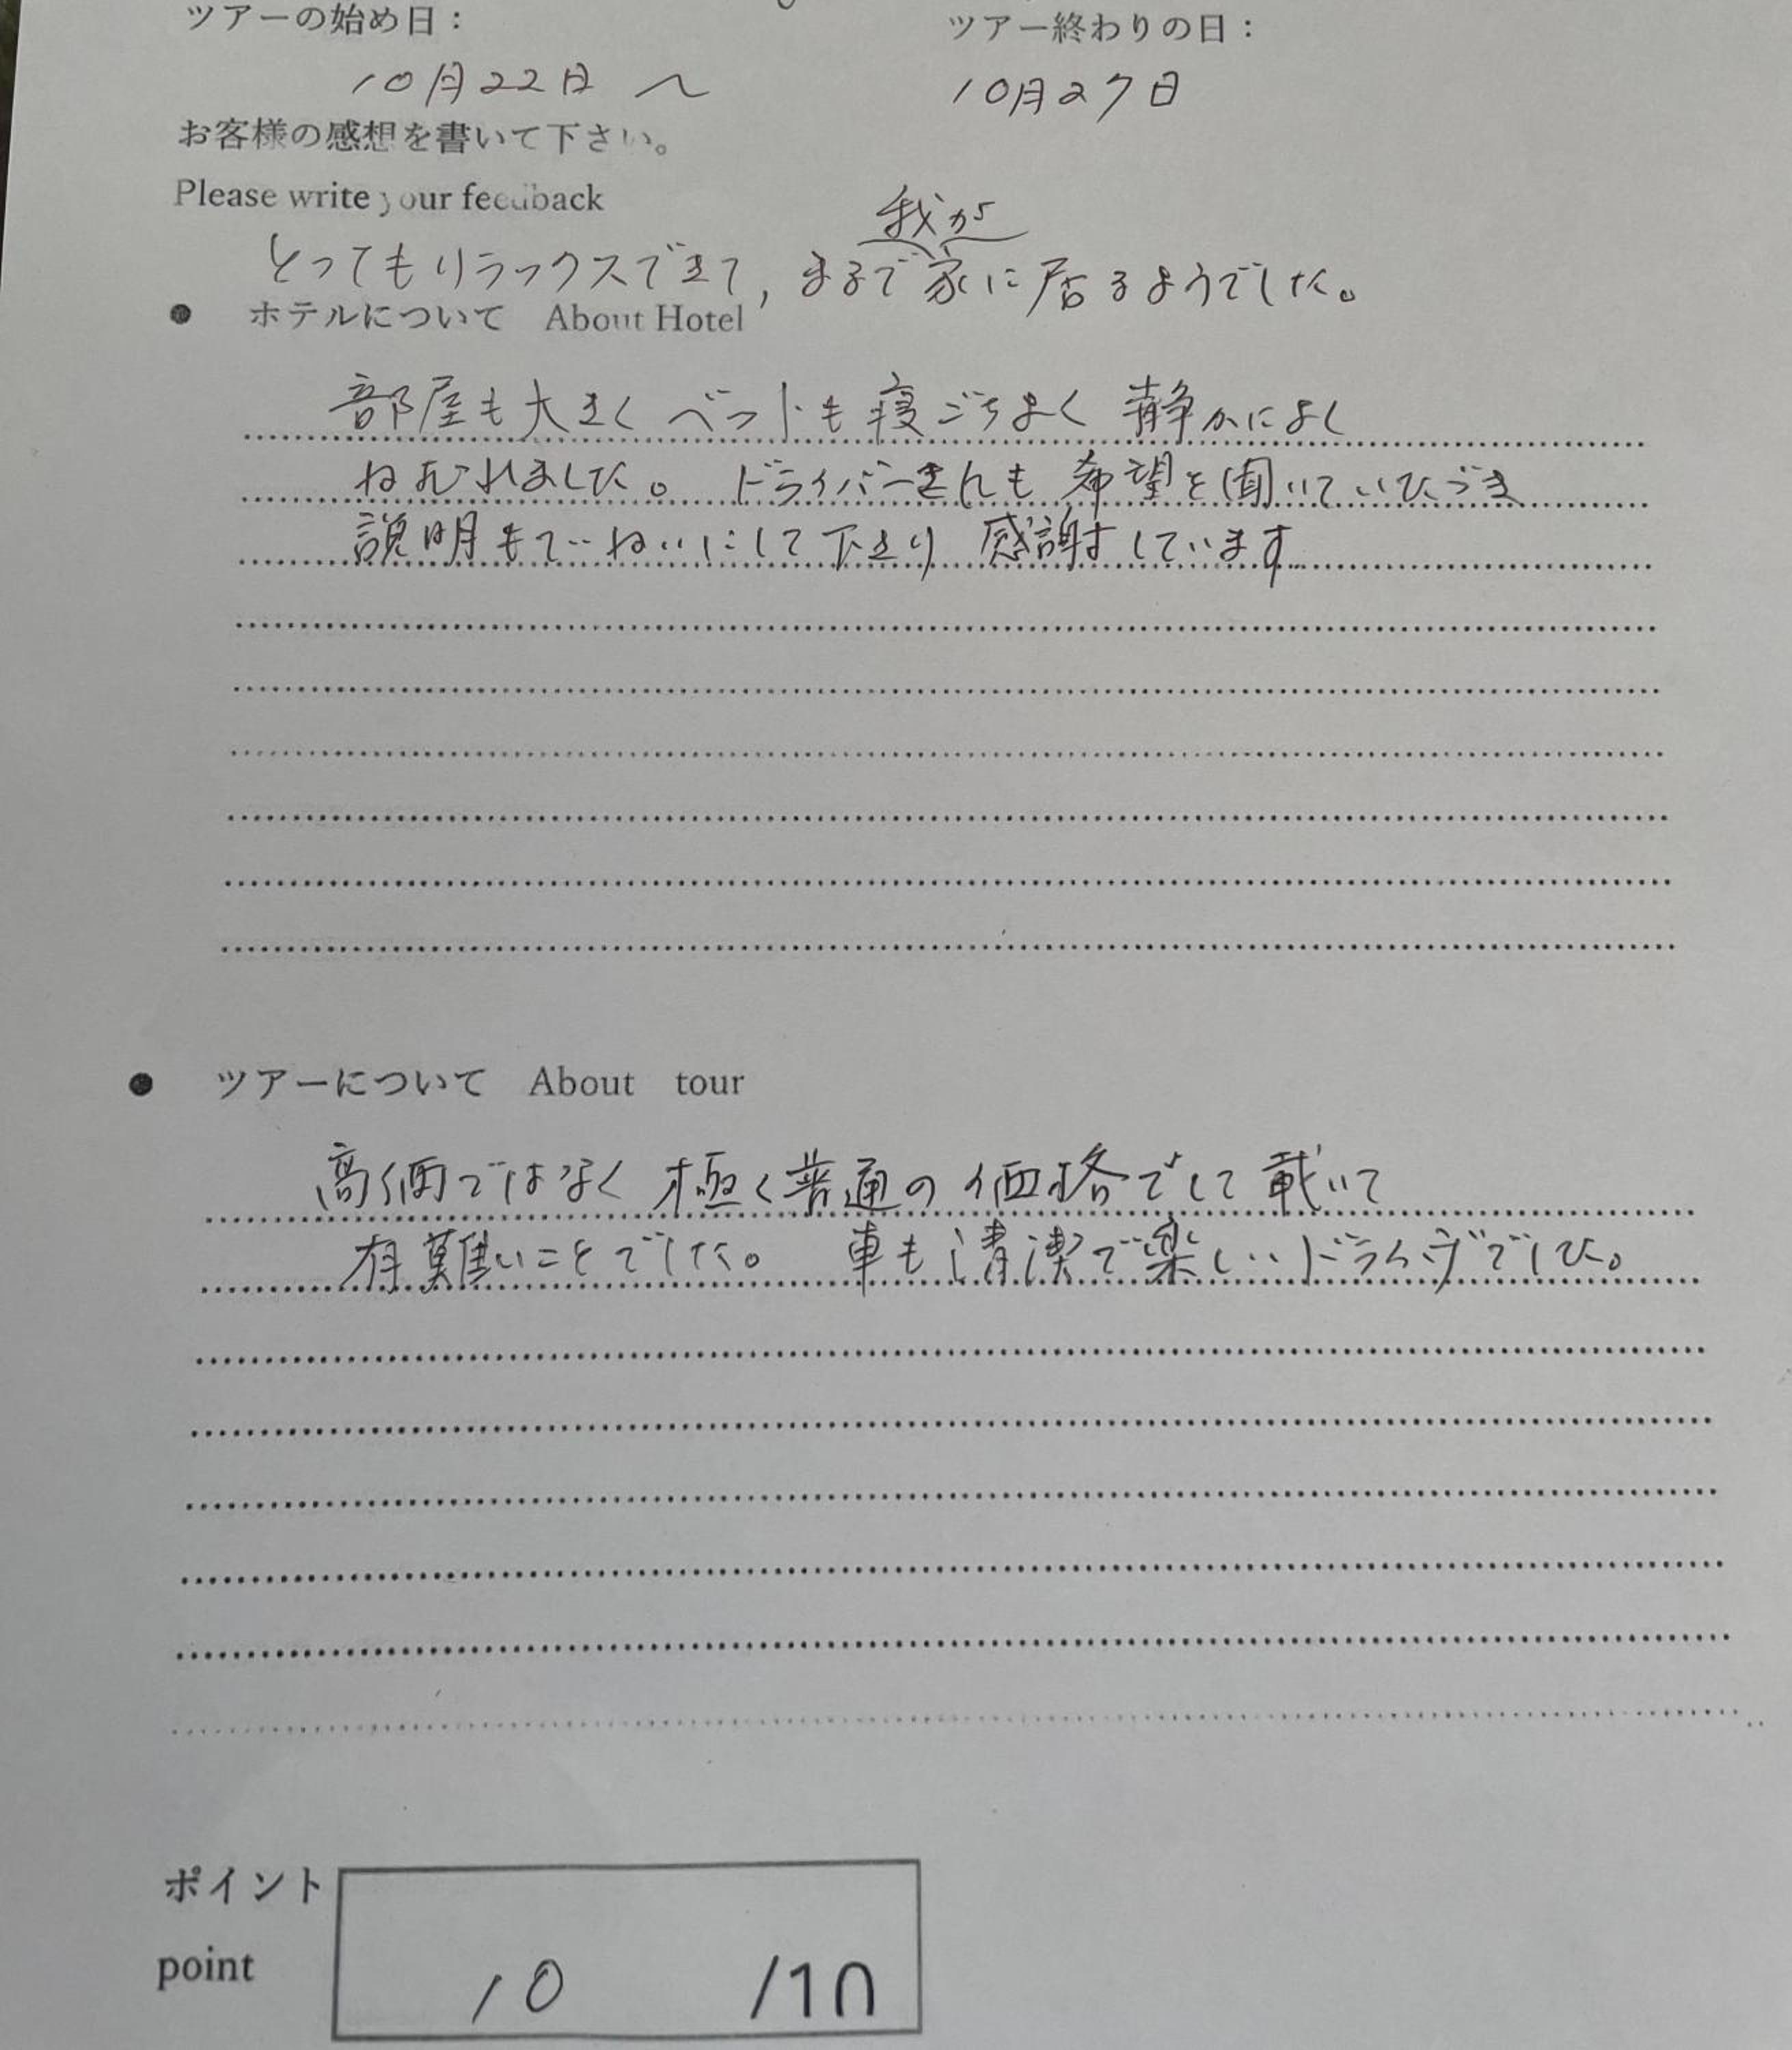 ツアーの始め日： ツアー終わりの日：
10月22日 〜 10月27日
お客様の感想を書いて下さい。
Please write your feedback
我が
とってもリラックスできて, まるで家に居るようでした。
● ホテルについて About Hotel
部屋も大きく ベットも寝ごちよく 静かによく
ねむれました。 ドライバーさんも 希望を聞いていただき
説明もていねいにして下さり 感謝しています
● ツアーについて About tour
高価ではなく 極く普通の価格でして 載いて
有難いことでした。 車も清潔で楽しいドライヴでした。
ポイント
point
10 /10